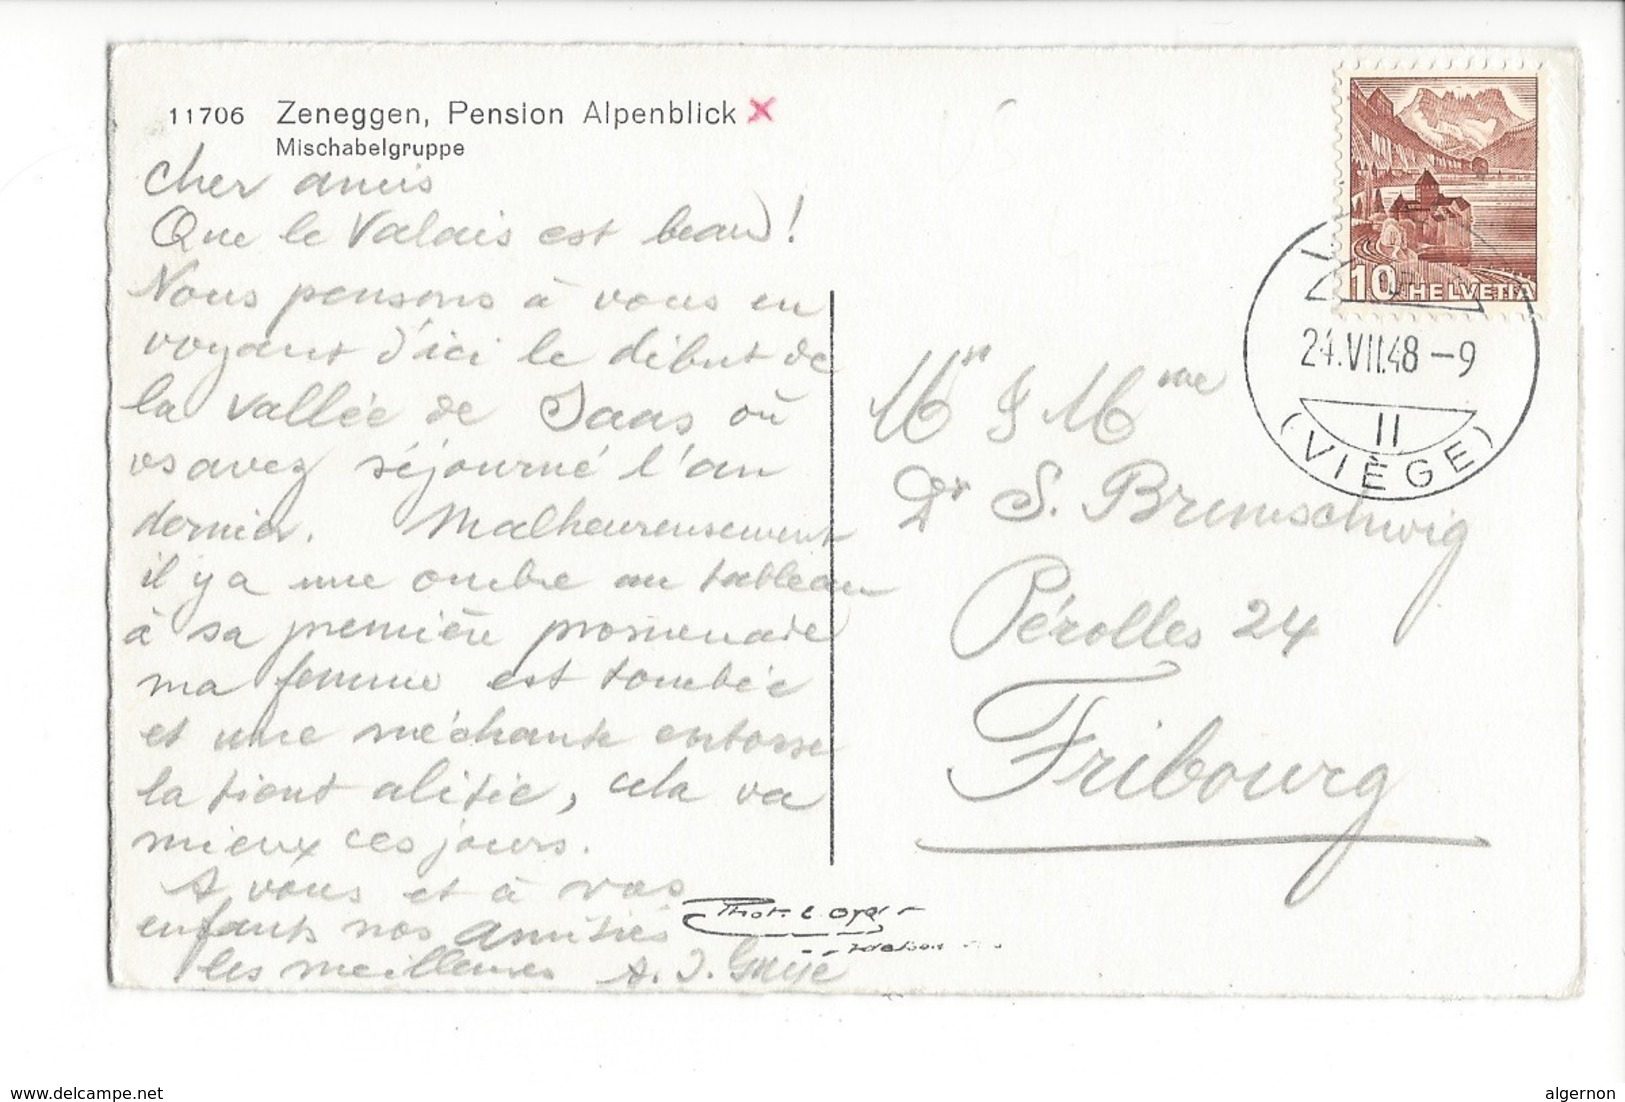 11706 Zeneggen, Pension Alpenblick
Mischabelgruppe
cher amis
Que le Valais est beau !
Nous pensons à vous en
voyant d'ici le début de
la vallée de Saas où
vs avez séjourné l'an
dernier. Malheureusement
il y a une ombre au tableau
à sa première promenade
ma femme est tombée
et une méchante entorse
la tient alitée, cela va
mieux ces jours.
A vous et à vos
enfants nos amitiés
les meilleures A. J.
10 HELVETIA
24.VII.48 -9
II
(VIÈGE)
Mr & Mme
Dr S. Brunschwig
Pérolles 24
Fribourg
Phot.
www.delcampe.net
algernon